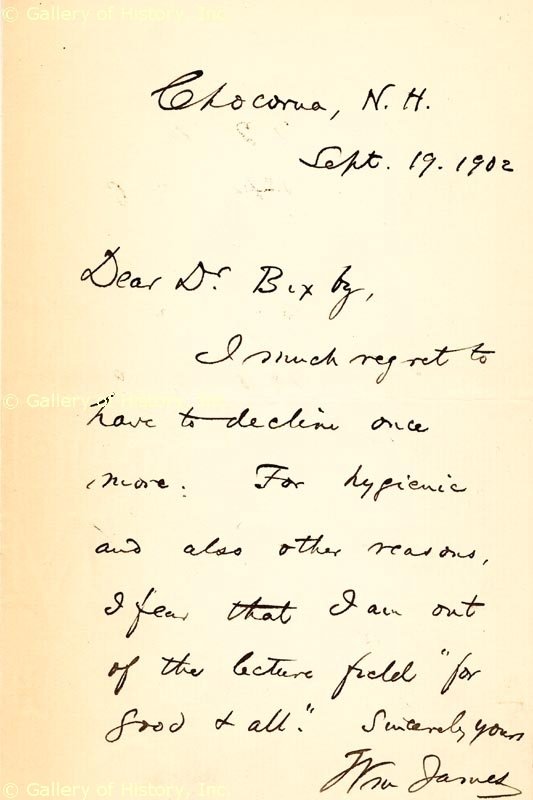 © Gallery of History, Inc.
Chocorua, N. H.
Sept. 19. 1902
Dear Dr. Bixby,
I much regret to
© Gallery of History, Inc.
have to decline once
more. For hygienic
and also other reasons,
I fear that I am out
of the lecture field "for
good & all". Sincerely yours
Wm James
© Gallery of History, Inc.